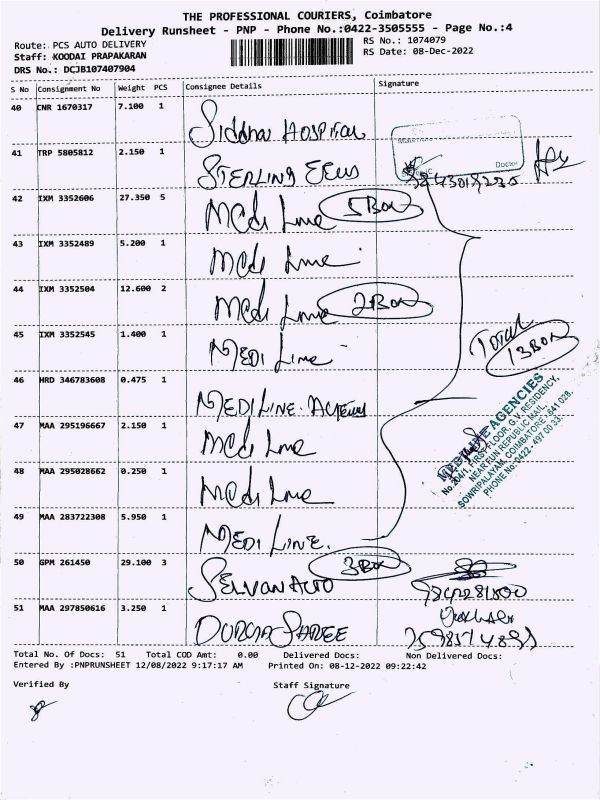 THE PROFESSIONAL COURIERS, Coimbatore
Delivery Runsheet - PNP - Phone No.:0422-3505555 - Page No.:4
Route: PCS AUTO DELIVERY
RS No.: 1074079
Staff: KOODAI PRAPAKARAN
RS Date: 08-Dec-2022
DRS No.: DCJB107407904
S No Consignment No Weight PCS Consignee Details Signature
40 CNR 1670317 7.100 1 Siddhar HOSPITAL
41 TRP 5805812 2.150 1 STERLING
Doctor
42 IXM 3352606 27.350 5 Medi Line 5 Box
43 IXM 3352489 5.200 1 Medi Line
44 IXM 3352504 12.600 2 Medi Line 2 Box
45 IXM 3352545 1.400 1 MEDI Line
TOTAL 13 BOX
46 HRD 346783608 0.475 1 MEDI LINE.
47 MAA 295196667 2.150 1 Medi Line
48 MAA 295028662 0.250 1 Medi Line
AGENCIES
No.204/1, FIRST FLOOR, G.V. RESIDENCY,
NEAR FUN REPUBLIC MALL,
SOWRIPALAYAM, COIMBATORE - 641 028.
PHONE No:0422 - 497 00 33.
49 MAA 283722308 5.950 1 MEDI LINE.
50 GPM 261450 29.100 3 SELVAN AUTO 3 Box
51 MAA 297850616 3.250 1 DURGA SAREE
Total No. Of Docs: 51 Total COD Amt: 0.00 Delivered Docs: Non Delivered Docs:
Entered By :PNPRUNSHEET 12/08/2022 9:17:17 AM Printed On: 08-12-2022 09:22:42
Verified By Staff Signature